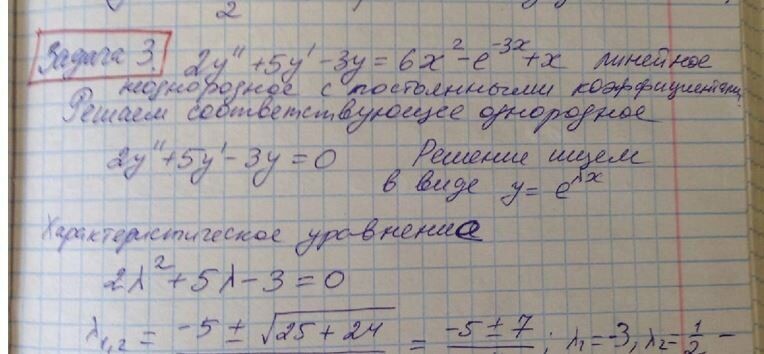 2
Задача 3. 2y'' + 5y' - 3y = 6x² - e⁻³ˣ + x линейное
неоднородное с постоянными коэффициентами.
Решаем соответствующее однородное
2y'' + 5y' - 3y = 0 Решение ищем
в виде y = e^λx
Характеристическое уравнение
2λ² + 5λ - 3 = 0
λ₁,₂ = -5 ± √25 + 24 = -5 ± 7 ; λ₁ = -3, λ₂ = 1/2, –